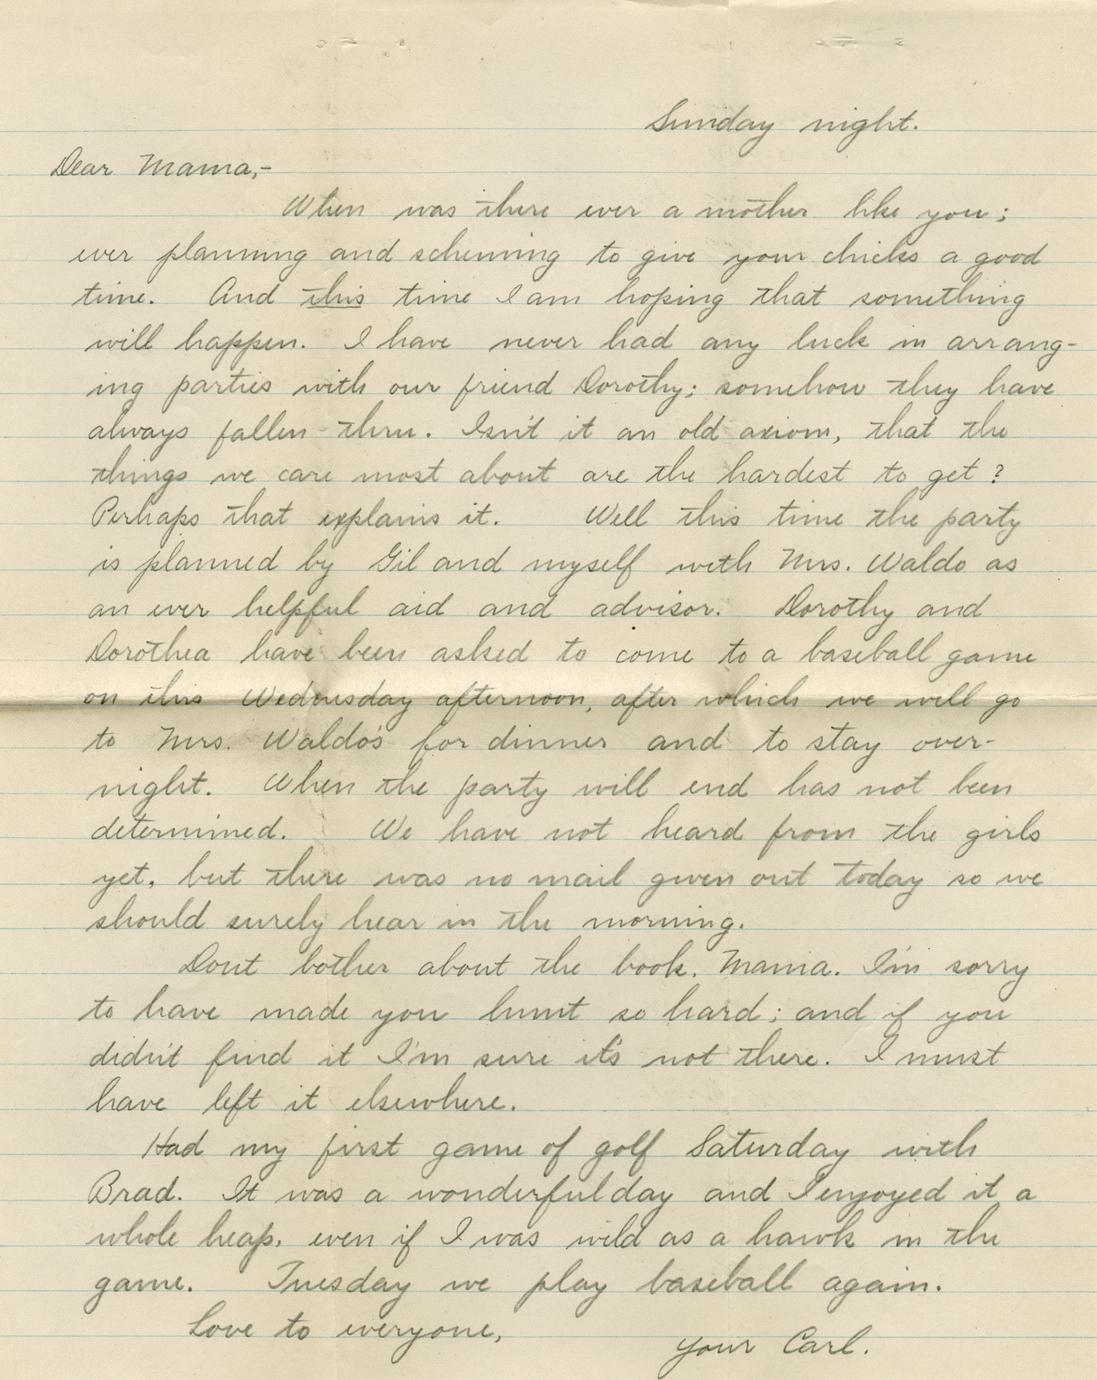 Sunday night.
Dear Mama,-
When was there ever a mother like you;
ever planning and scheming to give your chicks a good
time. And this time I am hoping that something
will happen. I have never had any luck in arrang-
ing parties with our friend Dorothy; somehow they have
always fallen thru. Isn't it an old axiom, that the
things we care most about are the hardest to get?
Perhaps that explains it. Well this time the party
is planned by Gil and myself with Mrs. Waldo as
an ever helpful aid and advisor. Dorothy and
Dorothea have been asked to come to a baseball game
on this Wednesday afternoon, after which we will go
to Mrs. Waldo's for dinner and to stay over-
night. When the party will end has not been
determined. We have not heard from the girls
yet, but there was no mail given out today so we
should surely hear in the morning.
Dont bother about the book, Mama. I'm sorry
to have made you hunt so hard; and if you
didn't find it I'm sure it's not there. I must
have left it elsewhere.
Had my first game of golf Saturday with
Brad. It was a wonderful day and I enjoyed it a
whole heap, even if I was wild as a hawk in the
game. Tuesday we play baseball again.
Love to everyone,
Your Carl.